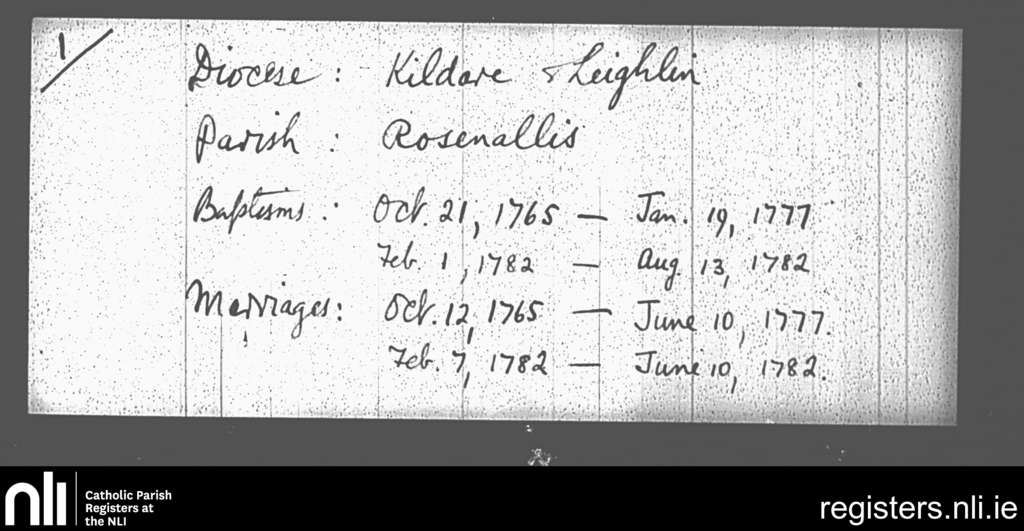 1/
Diocese : Kildare & Leighlin
Parish : Rosenallis
Baptisms : Oct. 21, 1765 — Jan. 19, 1777
Feb. 1, 1782 — Aug 13, 1782
Marriages : Oct. 12, 1765 — June 10, 1777.
Feb. 7, 1782 — June 10, 1782.
nli
Catholic Parish
Registers at
the NLI
registers.nli.ie